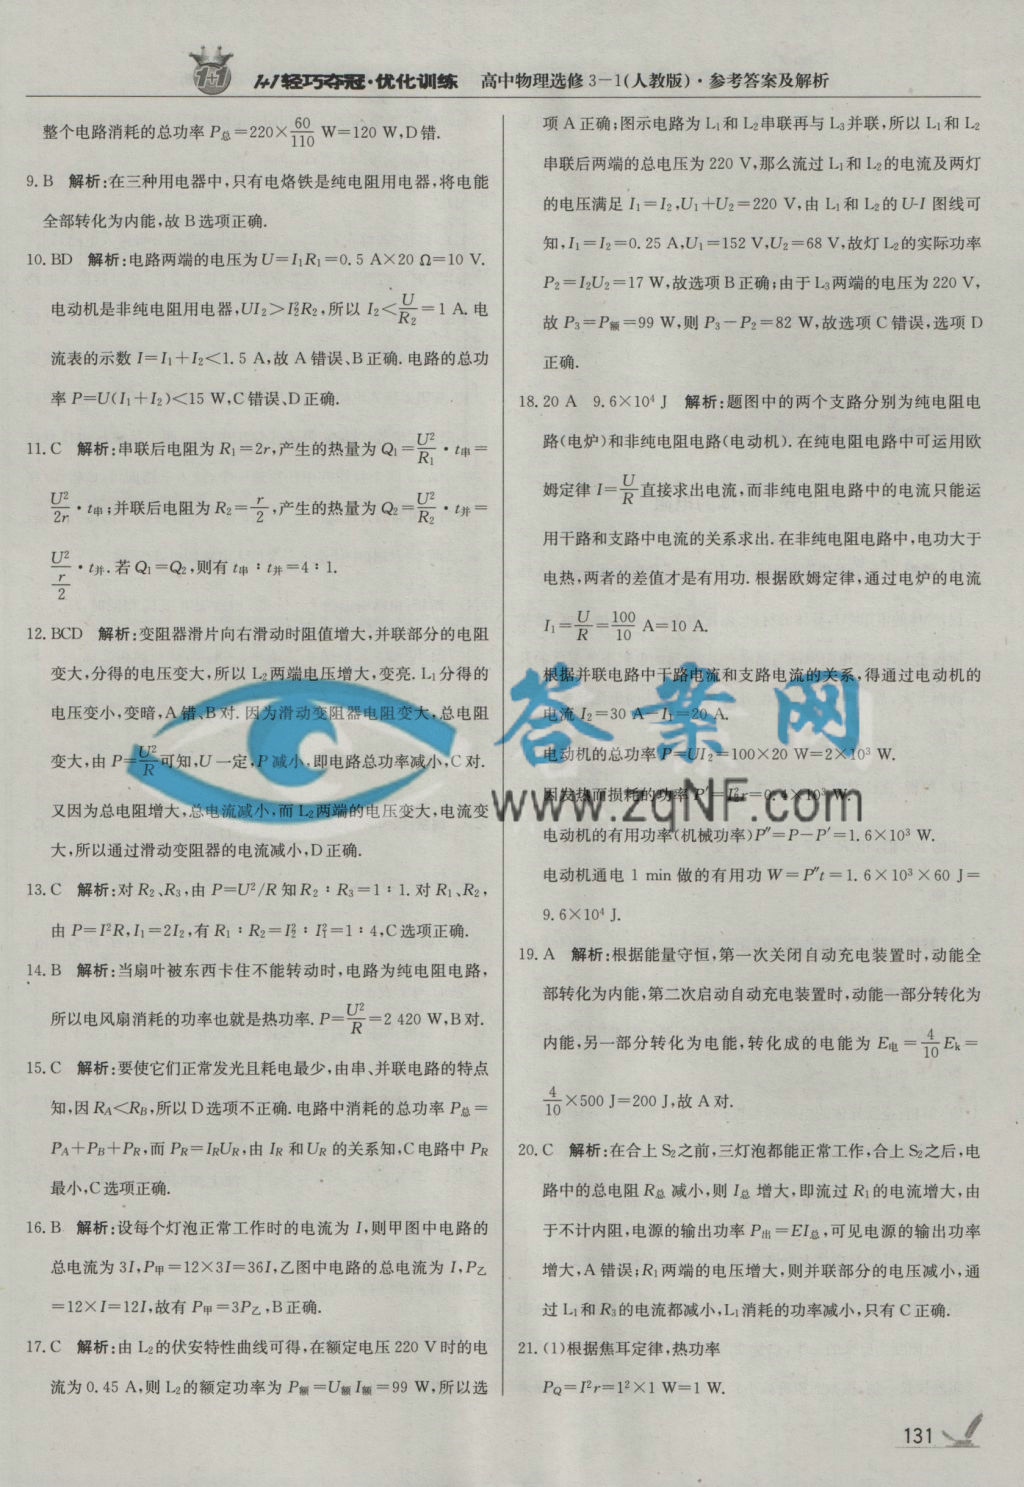 1+1轻巧夺冠·优化训练 高中物理选修3-1(人教版)·参考答案及解析
整个电路消耗的总功率 P总=220×60/110 W=120 W,D错.
9. B 解析:在三种用电器中,只有电烙铁是纯电阻用电器,将电能
全部转化为内能,故B选项正确.
10. BD 解析:电路两端的电压为U=I₁R₁=0.5 A×20 Ω=10 V.
电动机是非纯电阻用电器,UI₂>I₂²R₂,所以 I₂<U/R₂=1 A.电
流表的示数 I=I₁+I₂<1.5 A,故A错误、B正确.电路的总功
率 P=U(I₁+I₂)<15 W,C错误、D正确.
11. C 解析:串联后电阻为R₁=2r,产生的热量为Q₁=U²/R₁·t串=
U²/2r·t串;并联后电阻为R₂=r/2,产生的热量为Q₂=U²/R₂·t并=
U²/(r/2)·t并.若Q₁=Q₂,则有t串∶t并=4∶1.
12. BCD 解析:变阻器滑片向右滑动时阻值增大,并联部分的电阻
变大,分得的电压变大,所以L₂两端电压增大,变亮.L₁分得的
电压变小,变暗,A错、B对.因为滑动变阻器电阻变大,总电阻
变大,由P=U²/R可知,U一定,P减小,即电路总功率减小,C对.
又因为总电阻增大,总电流减小,而L₂两端的电压变大,电流变
大,所以通过滑动变阻器的电流减小,D正确.
13. C 解析:对R₂、R₃,由P=U²/R知R₂∶R₃=1∶1.对R₁、R₂,
由P=I²R,I₁=2I₂,有R₁∶R₂=I₂²∶I₁²=1∶4,C选项正确.
14. B 解析:当扇叶被东西卡住不能转动时,电路为纯电阻电路,
所以电风扇消耗的功率也就是热功率.P=U²/R=2 420 W,B对.
15. C 解析:要使它们正常发光且耗电最少,由串、并联电路的特点
知,因RA<RB,所以D选项不正确.电路中消耗的总功率P总=
PA+PB+PR,而PR=IRUR,由IR和UR的关系知,C电路中PR
最小,C选项正确.
16. B 解析:设每个灯泡正常工作时的电流为I,则甲图中电路的
总电流为3I,P甲=12×3I=36I,乙图中电路的总电流为I,P乙
=12×I=12I,故有P甲=3P乙,B正确.
17. C 解析:由L₂的伏安特性曲线可得,在额定电压220 V时的电
流为0.45 A,则L₂的额定功率为P额=U额I额=99 W,所以选
项A正确;图示电路为L₁和L₂串联再与L₃并联,所以L₁和L₂
串联后两端的总电压为220 V,那么流过L₁和L₂的电流及两灯
的电压满足I₁=I₂,U₁+U₂=220 V,由L₁和L₂的U-I图线可
知,I₁=I₂=0.25 A,U₁=152 V,U₂=68 V,故灯L₂的实际功率
P₂=I₂U₂=17 W,故选项B正确;由于L₃两端的电压为220 V,
故P₃=P额=99 W,则P₃-P₂=82 W,故选项C错误,选项D
正确.
18. 20 A 9.6×10⁴ J 解析:题图中的两个支路分别为纯电阻电
路(电炉)和非纯电阻电路(电动机).在纯电阻电路中可运用欧
姆定律I=U/R直接求出电流,而非纯电阻电路中的电流只能运
用干路和支路中电流的关系求出.在非纯电阻电路中,电功大于
电热,两者的差值才是有用功.根据欧姆定律,通过电炉的电流
I₁=U/R=100/10 A=10 A.
根据并联电路中干路电流和支路电流的关系,得通过电动机的
电流I₂=30 A-I₁=20 A.
电动机的总功率P=UI₂=100×20 W=2×10³ W.
因发热而损耗的功率P′=I₂²r=0.4×10³ W.
电动机的有用功率(机械功率)P″=P-P′=1.6×10³ W.
电动机通电1 min做的有用功W=P″t=1.6×10³×60 J=
9.6×10⁴ J.
19. A 解析:根据能量守恒,第一次关闭自动充电装置时,动能全
部转化为内能,第二次启动自动充电装置时,动能一部分转化为
内能,另一部分转化为电能,转化成的电能为E电=4/10Ek=
4/10×500 J=200 J,故A对.
20. C 解析:在合上S₂之前,三灯泡都能正常工作,合上S₂之后,电
路中的总电阻R总减小,则I总增大,即流过R₁的电流增大,由
于不计内阻,电源的输出功率P出=EI总,可见电源的输出功率
增大,A错误;R₁两端的电压增大,则并联部分的电压减小,通
过L₁和R₃的电流都减小,L₁消耗的功率减小,只有C正确.
21. (1)根据焦耳定律,热功率
PQ=I²r=1²×1 W=1 W.
答案网
www.zqNF.com
131